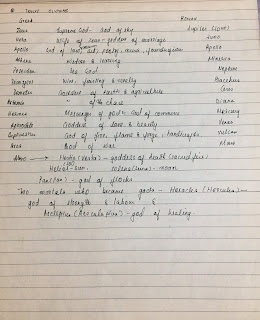 Greek Roman
Zeus Supreme God - God of sky Jupiter (Jove)
Hera Wife of Zeus - goddess of marriage Juno
Apollo God of law, arts, poetry, music, Apollo
Athena Wisdom & learning Minerva
Poseidon Sea God Neptune
Dionysus Wine, fertility & revelry Bacchus
Demeter Goddess of & agriculture Ceres
Artemis " of the chase Diana
Hermes Messenger of gods - God of commerce Mercury
Aphrodite Goddess of love & beauty Venus
Hephaestus God of fire, flame & forge, Vulcan
Ares God of war Mars
Also → Hestia (Vesta) - goddess of hearth (sacred fire)
Helios - sun. Selene (Luna) - moon
Pan - god of flocks
Two mortals who became gods - Heracles (Hercules) -
god of strength & labour &
Asclepius (Aesculapius) - god of healing.